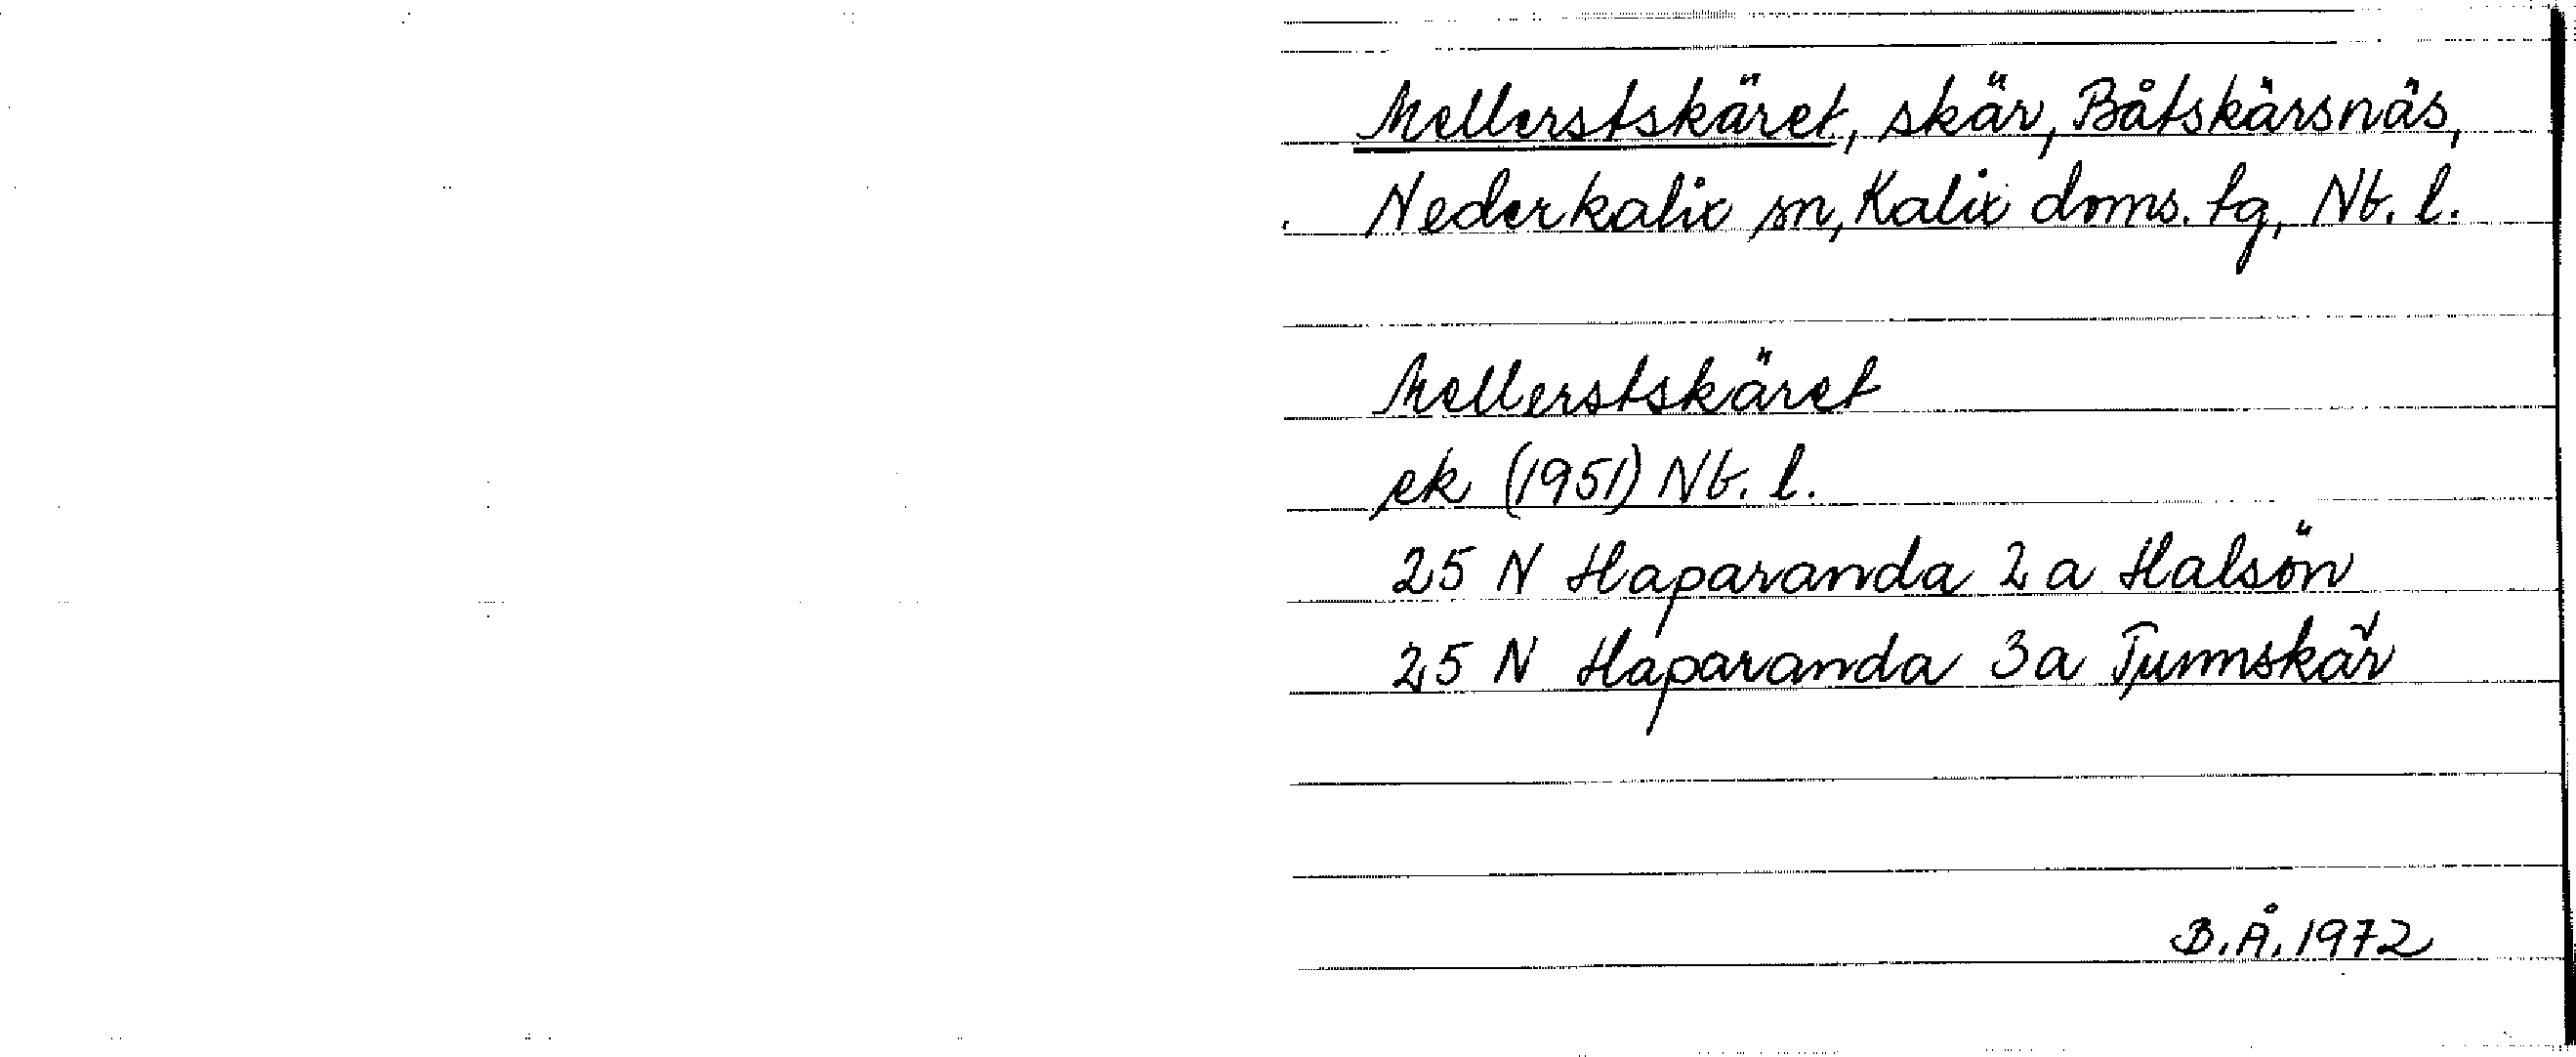 Mellerstskäret, skär, Båtskärsnäs,
Nederkalix sn, Kalix doms. tg, Nb. l.
Mellerstskäret
ek (1951) Nb. l.
25 N Haparanda 2 a Halsön
25 N Haparanda 3a Tunnskär
B.Å. 1972